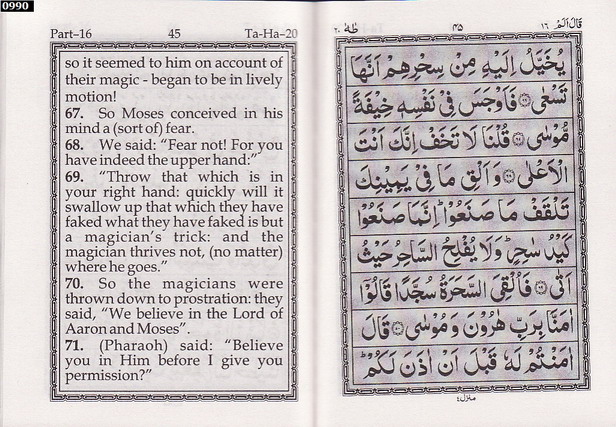 0990
Part–16 45 Ta-Ha–20
so it seemed to him on account of
their magic - began to be in lively
motion!
67. So Moses conceived in his
mind a (sort of) fear.
68. We said: “Fear not! For you
have indeed the upper hand:”
69. “Throw that which is in
your right hand: quickly will it
swallow up that which they have
faked what they have faked is but
a magician’s trick: and the
magician thrives not, (no matter)
where he goes.”
70. So the magicians were
thrown down to prostration: they
said, “We believe in the Lord of
Aaron and Moses”.
71. (Pharaoh) said: “Believe
you in Him before I give you
permission?”
قَالَ اَلَمْ ١٦ ٤٥ طٰهٰ ٢٠
يُخَيَّلُ اِلَيْهِ مِنْ سِحْرِهِمْ اَنَّهَا
تَسْعٰى ٦٦ فَاَوْجَسَ فِيْ نَفْسِهٖ خِيْفَةً
مُّوْسٰى ٦٧ قُلْنَا لَا تَخَفْ اِنَّكَ اَنْتَ
الْاَعْلٰى ٦٨ وَاَلْقِ مَا فِيْ يَمِيْنِكَ
تَلْقَفْ مَا صَنَعُوْا ؕ اِنَّمَا صَنَعُوْا
كَيْدُ سٰحِرٍ ؕ وَلَا يُفْلِحُ السَّاحِرُ حَيْثُ
اَتٰى ٦٩ فَاُلْقِيَ السَّحَرَةُ سُجَّدًا قَالُوْٓا
اٰمَنَّا بِرَبِّ هٰرُوْنَ وَمُوْسٰى ٧٠ قَالَ
اٰمَنْتُمْ لَهٗ قَبْلَ اَنْ اٰذَنَ لَكُمْ ؕ